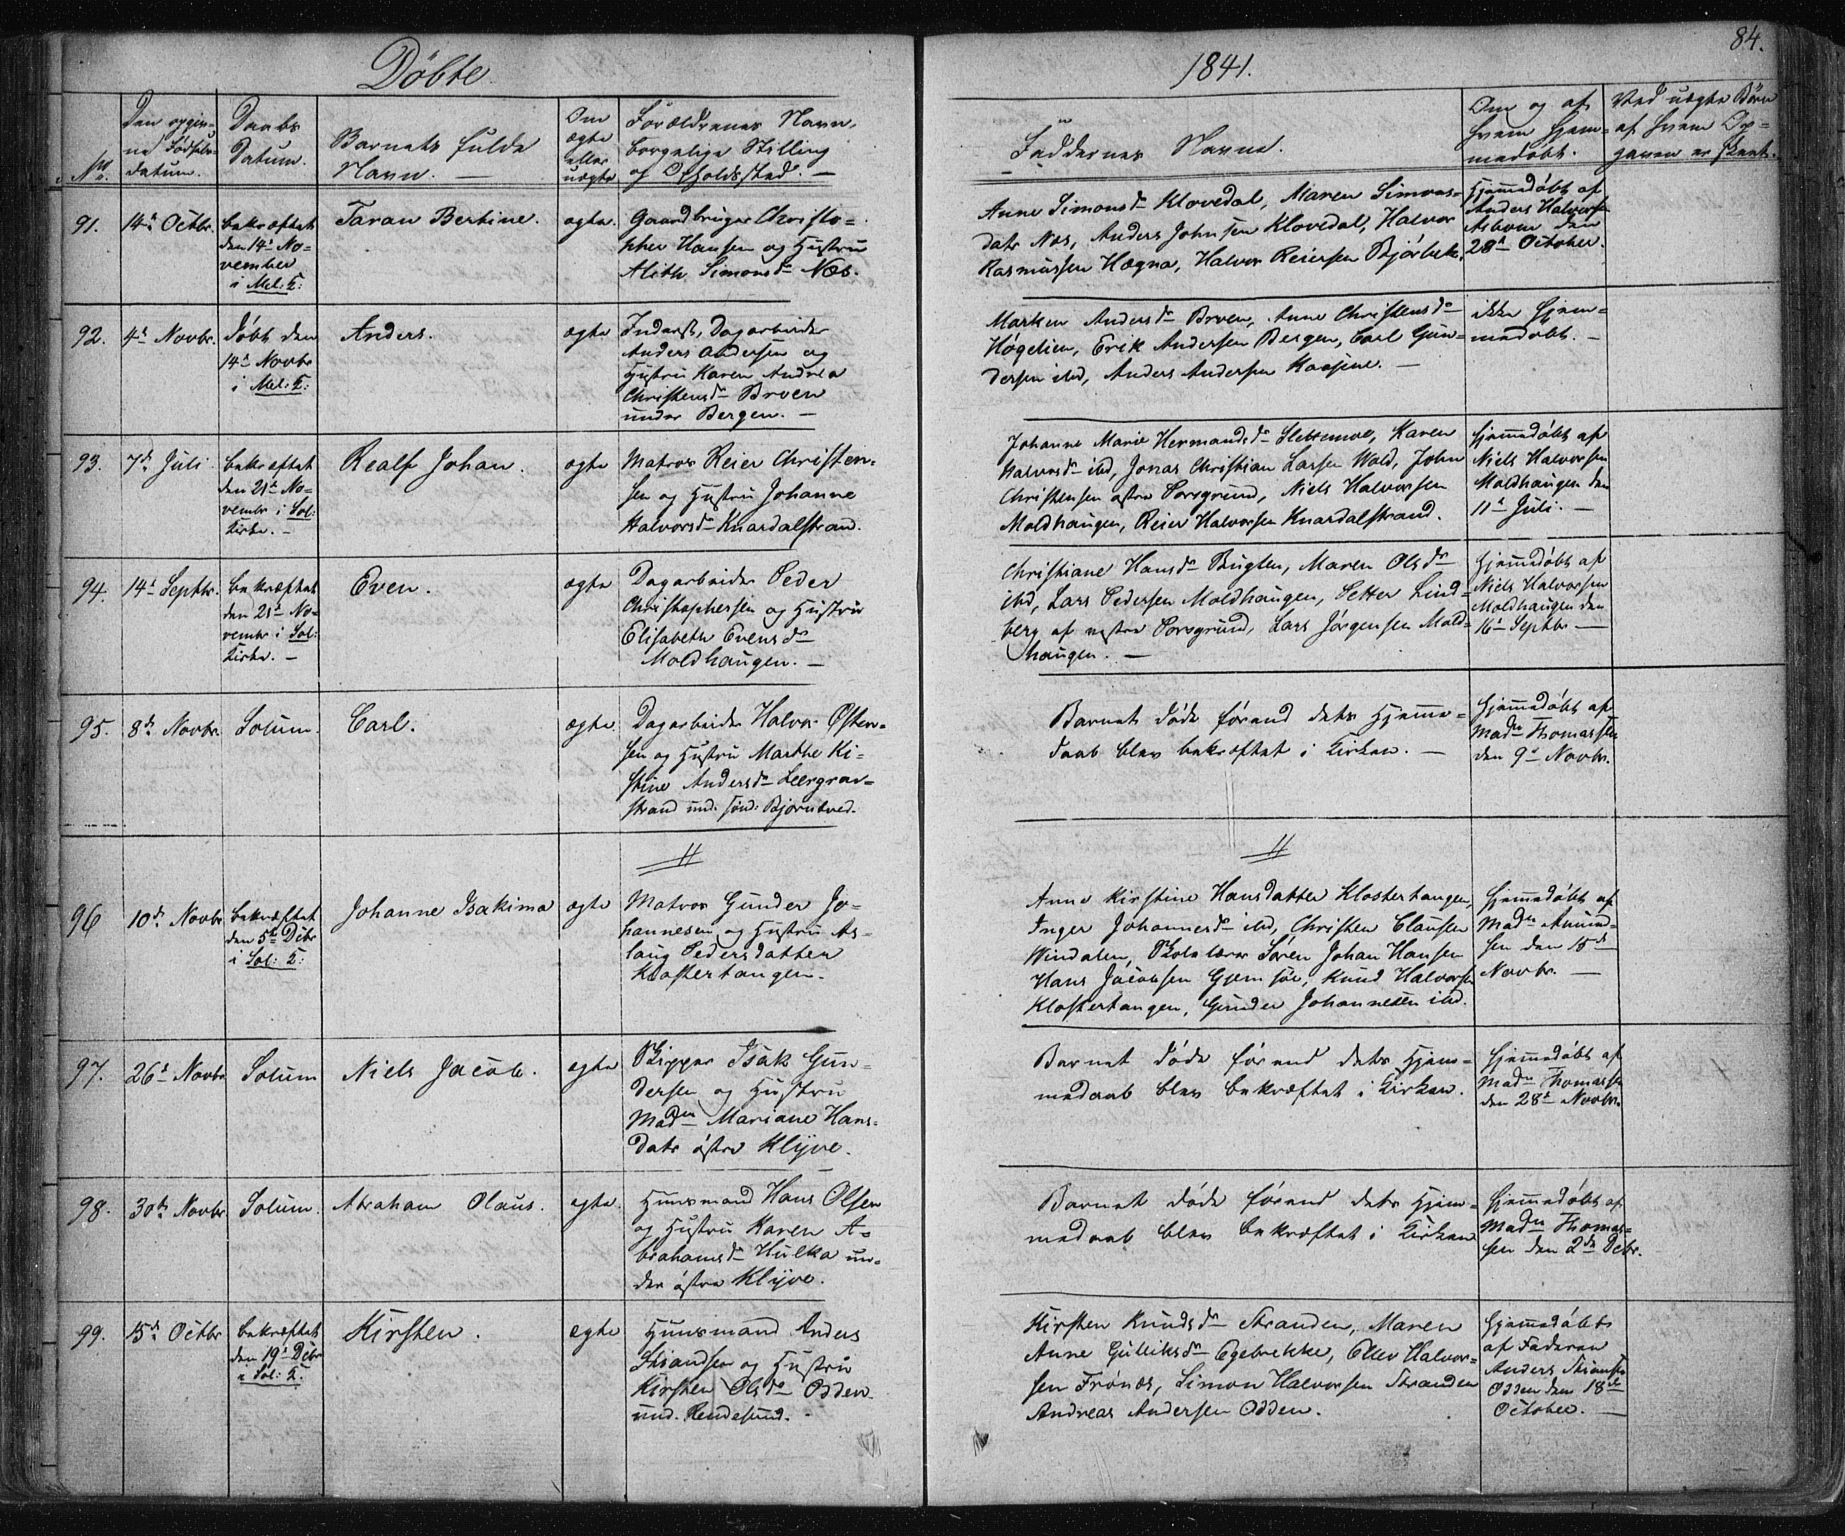 Döbte
1841.
84.
No.
Den opgiv-
ne Födsels-
datum.
Daabs
Datum.
Barnets fulde
Navn. —
Om
ægte
eller
uægte
Forældrenes Navn,
borgelige Stilling
og Opholdssted. —
Faddernes Navne.
Om og af
hvem hjem-
medöbt.
Ved uægte Börn
af hvem Op-
gaven er skeet.
91.
14de Octbr.
bekræftet
den 14de No-
vember
i Mel: K:
Taran Bertine.
ægte.
Gaardbruger Christo-
pher Hansen og Hustru
Alith Simonsdr Næs.
Anne Simonsdr Klovedal, Maren Simons-
datr Næs, Anders Johnsen Klovedal, Halvor
Rasmussen Hægna, Halvor Reiersen Bjørbek.
Hjemmedöbt af
Anders Halvorsen
Aasbom den
28de October.
92.
4de Novbr.
döbt den
14de Novbr
i Mel: K:
Anders.
ægte
Inderst, Dagarbeider
Anders Andersen og
Hustru Karen Andrea
Christensdr Broen
under Bergen. —
Marthen Andersdr Broen, Anne Christensdr
Høgelien, Erik Andersen Bergen, Carl Gun-
dersen ibd, Anders Andersen Kaasene. —
ikke hjem-
medöbt. —
93.
7de Juli.
bekræftet
den 21de No-
vembr i Sol:
Kirke. —
Realf Johan.
ægte
Matros Reier Christen-
sen og Hustru Johanne
Halvorsdr Knardalstrand.
Johanne Marie Hermandsdr Slettemoe, Karen
Halvorsdr ibd, Jonas Christian Larsen Wold, John
Christensen østre Porsgrund, Niels Halvorsen
Moldhaugen, Reier Halvorsen Knardalstrand.
Hjemmedöbt af
Niels Halvorsen
Moldhaugen den
11te Juli. —
94.
14de Septbr.
bekræftet
den 21de No-
vembr i Sol:
Kirke. —
Even.
ægte
Dagarbeider Peder
Christophersen og Hustru
Elisabeth Evensdr
Moldhaugen. —
Christiane Hansdr Bugten, Maren Olsdr
ibd, Lars Pedersen Moldhaugen, Petter Lind-
berg af vestre Porsgrund, Lars Jörgensen Mold-
haugen. —
Hjemmedöbt af
Niels Halvorsen
Moldhaugen den
16de Septbr —
95.
8de Novbr.
Solum.
Carl.
ægte
Dagarbeider Halvor Østen-
sen og Hustru Marthe Ki-
stine Andersdr Leergrav-
strand und. sønd: Bjørntved.
Barnet döde förend dets Hjemme-
daab blev bekræftet i Kirken. —
Hjemmedöbt af
Madm Thomassen
den 9de Novbr.
96
10de Novbr
bekræftet
den 5te Decbr
i Sol: K:
Johanne Isakima
ægte
Matros Gunder Jo-
hannesen og Hustru As-
laug Pedersdatter
Klostertangen.
Anne Kirstine Hansdatter Klostertangen,
Inger Johannesdr ibd, Christen Clausen
Windalen, Skolelærer Sören Johan Hansen
Hans Jacobsen Gjemsöe, Knud Halvorsen
Klostertangen, Gunder Johannesen ibd.
Hjemmedöbt af
Madm Amund-
sen den 15de
Novbr. —
97.
26de Novbr
Solum
Niels Jacob.
ægte
Skipper Isak Gun-
dersen og Hustru
Madm Mariane Hans-
datr östre Klyve.
Barnet döde förend dets Hjem-
medaab blev bekræftet i Kirken.
Hjemmedöbt af
Madm Thomassen
den 28de Novbr.
98.
30de Novbr
Solum.
Abraham Olaus.
ægte.
Huusmand Hans Olsen
og Hustru Karen A-
brahamsdr Hulka un-
der östre Klyve.
Barnet döde förend dets Hjem-
medaab blev bekræftet i Kirken
Hjemmedöbt af
Madm Thomas-
sen den 2den Decbr.
99.
15de Octbr
bekræftet
den 19de Decbr
i Sol: K.
Kirsten.
ægte
Huusmand Anders
og Hustru
Kirsten Olsdr Odden
und. Rendesund.
Kirsten Knudsdr Stranden, Maren
Anne Gulliksdr Egebrekke, Ellev Halvor-
sen Frönes, Simon Halvorsen Stranden
Andreas Andersen Odden.
Hjemmedöbt
af Faderen
Anders
Odden den 18de
October. —